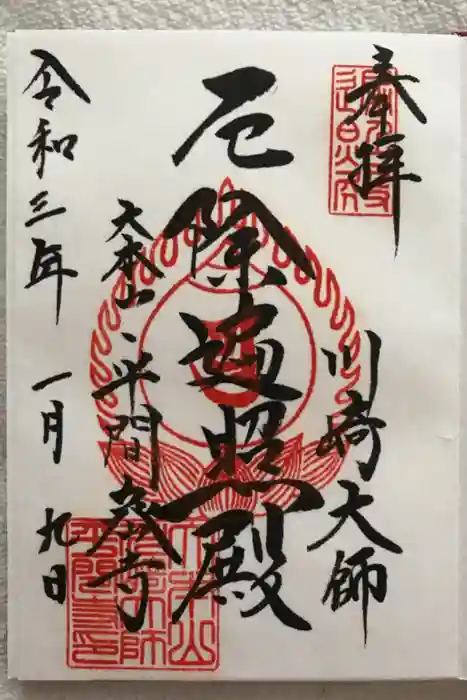 奉拝
川崎大師
厄除遍照殿
大本山
平間寺
令和三年
一月
九日